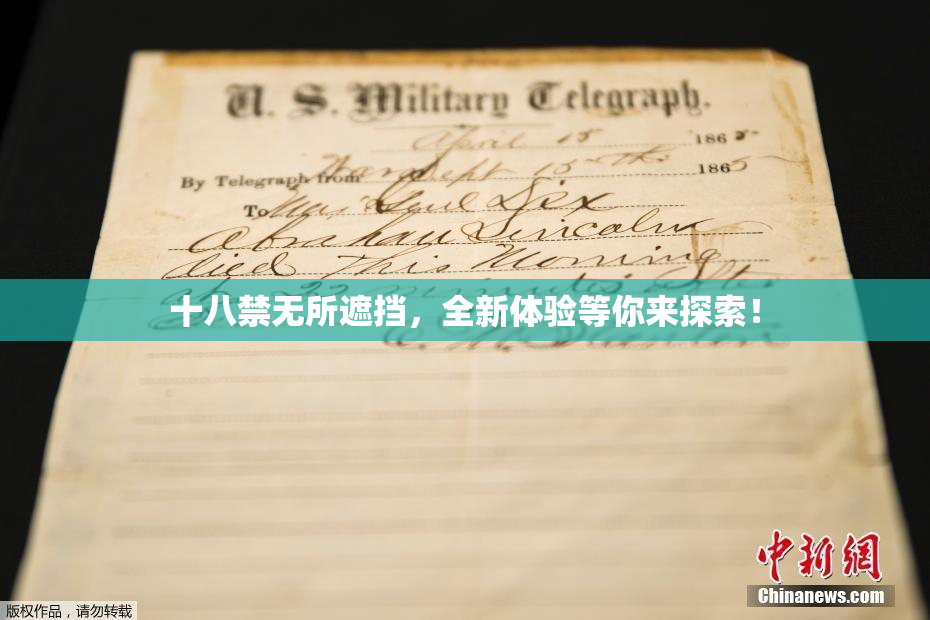 U. S. Military Telegraph.
April 15 1865
By Telegraph from War Dept 15th 1865
To Maj Genl Dix
Abraham Lincoln
died This Morning
22 minutes after
十八禁无所遮挡，全新体验等你来探索！
Stanton
中新网
Chinanews.com
版权作品，请勿转载